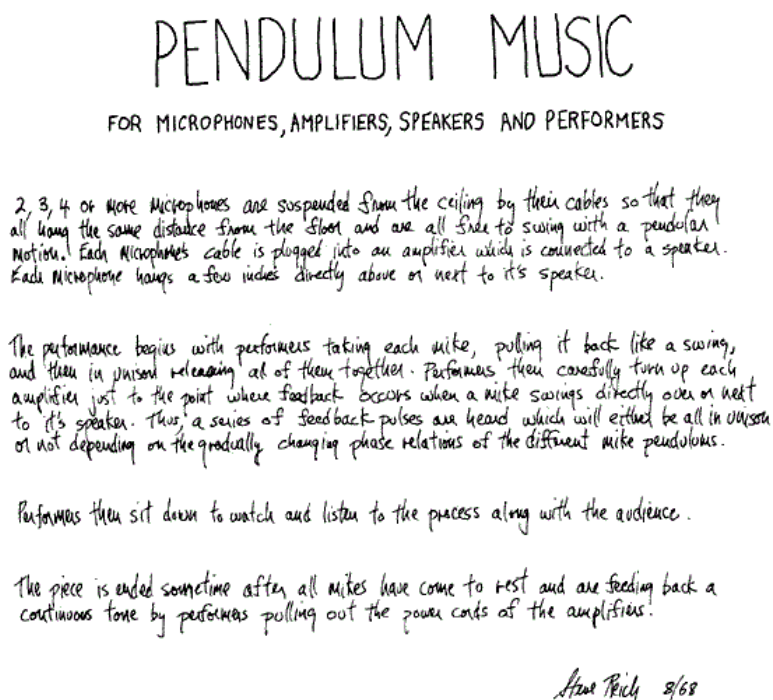 PENDULUM MUSIC
FOR MICROPHONES, AMPLIFIERS, SPEAKERS AND PERFORMERS
2, 3, 4 or more microphones are suspended from the ceiling by their cables so that they
all hang the same distance from the floor and are all free to swing with a pendular
motion. Each microphone's cable is plugged into an amplifier which is connected to a speaker.
Each microphone hangs a few inches directly above or next to it's speaker.
The performance begins with performers taking each mike, pulling it back like a swing,
and then in unison releasing al of them together. Performers then carefully turn up each
amplifier just to the point where feedback occurs when a mike swings directly over or next
to it's speaker. Thus, a series of feedback pulses are heard which will either be all in unison
or not depending on the gradually changing phase relations of the different mike pendulums.
Performers then sit down to watch and listen to the process along with the audience.
The piece is ended sometime after all mikes have come to rest and are feeding back a
continuous tone by performers pulling out the power cords of the amplifiers.
Steve Reich 8/68